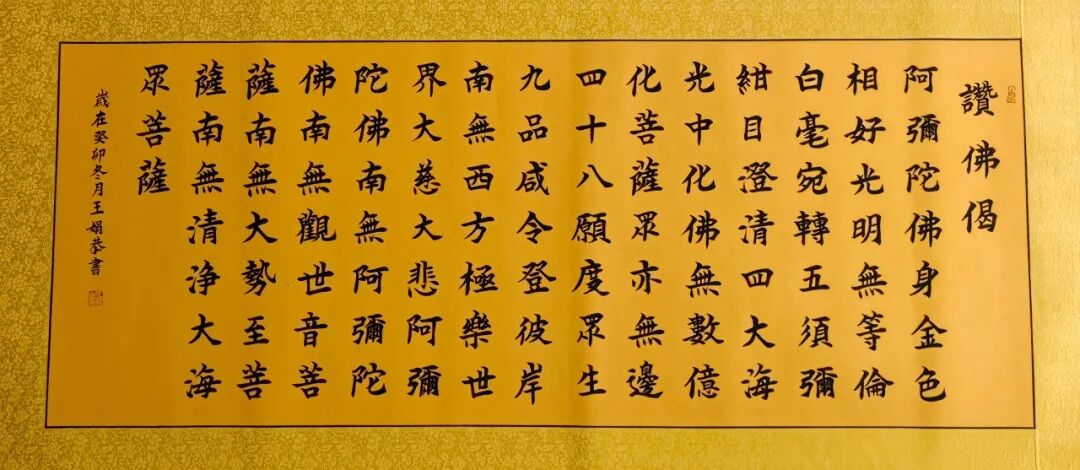 讚佛偈
阿彌陀佛身金色
相好光明無等倫
白毫宛轉五須彌
紺目澄清四大海
光中化佛無數億
化菩薩眾亦無邊
四十八願度眾生
九品咸令登彼岸
南無西方極樂世
界大慈大悲阿彌
陀佛南無阿彌陀
佛南無觀世音菩
薩南無大勢至菩
薩南無清淨大海
眾菩薩
歲在癸卯冬月王娟恭書